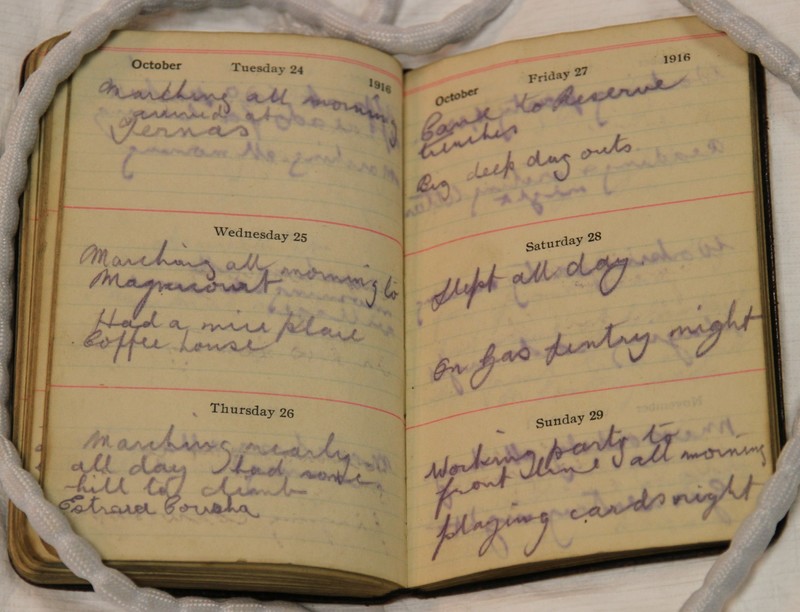 October Tuesday 24 1916
Marching all morning
arrived at
Ternas
Wednesday 25
Marching all morning to
Magnicourt
Had a nice place
Coffee house
Thursday 26
Marching nearly
all day had some
hill to climb
Estreé
October Friday 27 1916
Came to Reserve
trenches
Big deep dug outs
Saturday 28
Slept all day
On Gas Sentry night
Sunday 29
Working party to
front line all morning
playing cards night